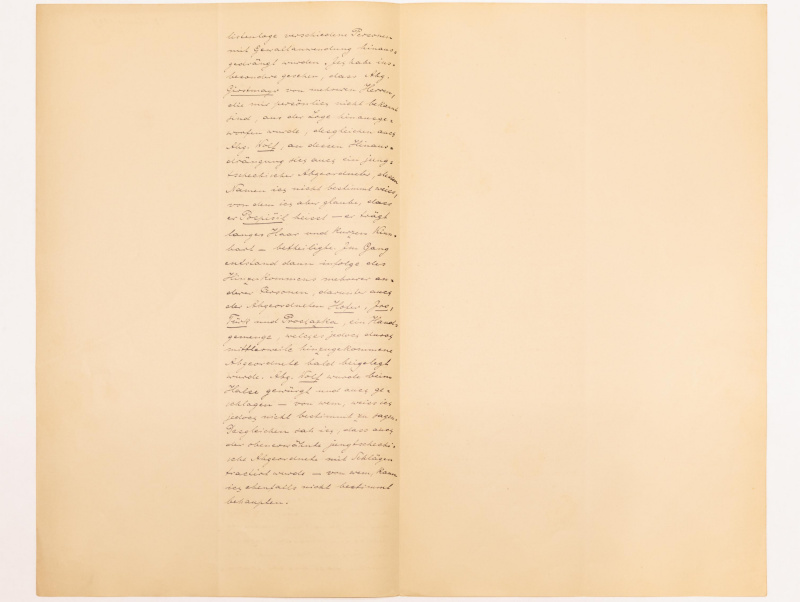 listenloge verschiedene Personen
mit Gewaltanwendung hinaus-
gedrängt wurden. Ich habe ins-
besondere gesehen, dass Abg.
Girstmayr von mehreren Herren,
die mir persönlich nicht bekannt
sind, aus der Loge hinausge-
worfen wurde, desgleichen auch
Abg. Wolf, an dessen Hinaus-
drängung sich auch ein jung-
tschechischer Abgeordneter, dessen
Namen ich nicht bestimmt weiss,
von dem ich aber glaube, dass
er Pospišil heisst — er trägt
langes Haar und kurzen Kinn-
bart — betheiligte. Im Gang
entstand dann infolge des
Hinzukommens mehrerer an-
derer Personen, darunter auch
der Abgeordneten Hofer, Iro,
Türk und Prochazka, ein Hand-
gemenge, welches jedoch durch
mittlerweile hinzugekommene
Abgeordnete bald beigelegt
wurde. Abg. Wolf wurde beim
Halse gewürgt und auch ge-
schlagen — von wem, weiss ich
jedoch nicht bestimmt zu sagen.
Desgleichen sah ich, dass auch
der oberwähnte jungtschechi-
sche Abgeordnete mit Schlägen
tractirt wurde — von wem, kann
ich ebenfalls nicht bestimmt
behaupten.